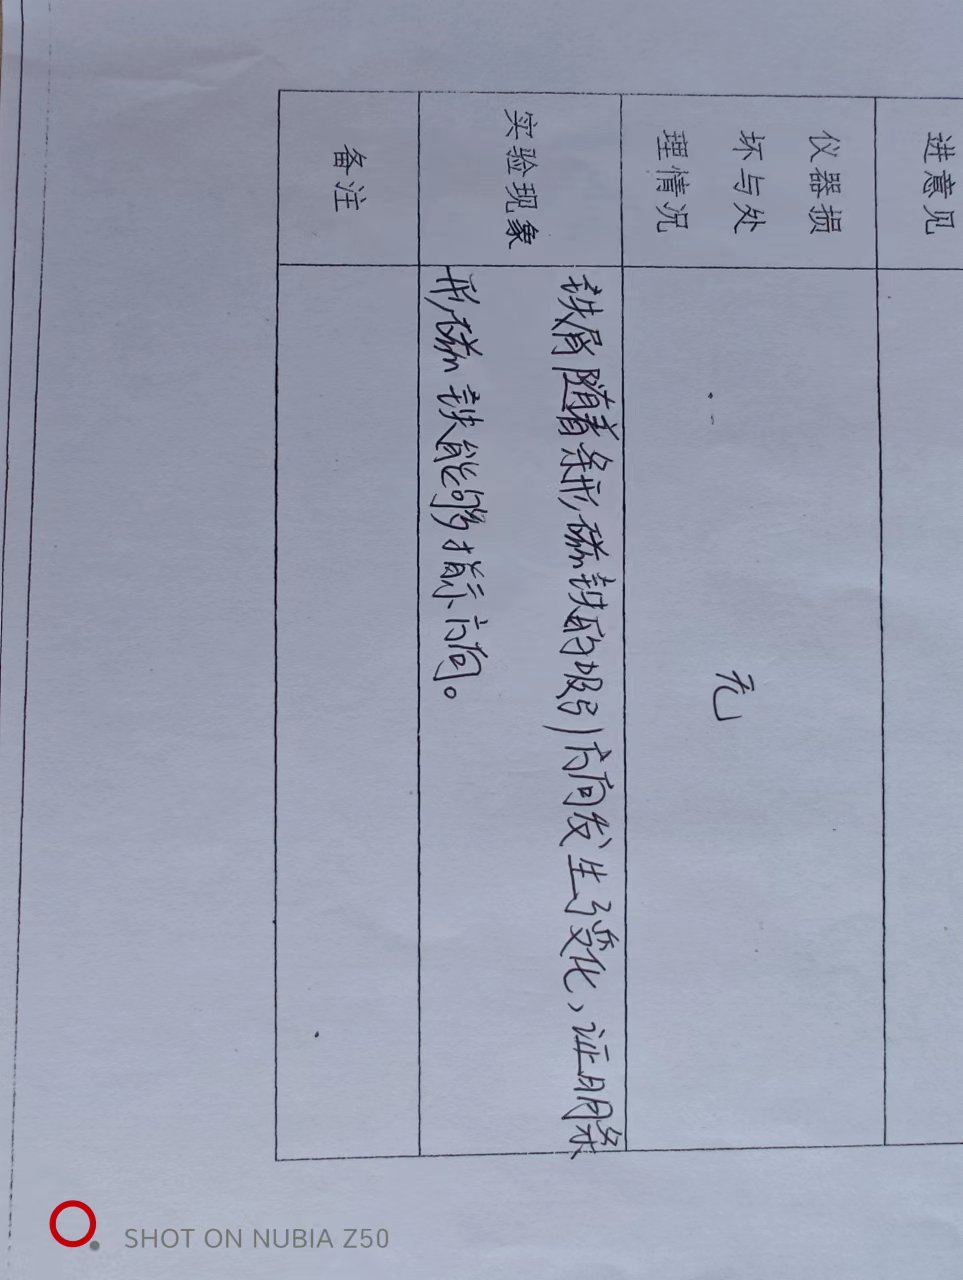 进意见
仪器损
坏与处
理情况
无
实验现象
铁屑随着条形磁铁的吸引方向发生了变化，证明条
形磁铁能够指示方向。
备注
SHOT ON NUBIA Z50